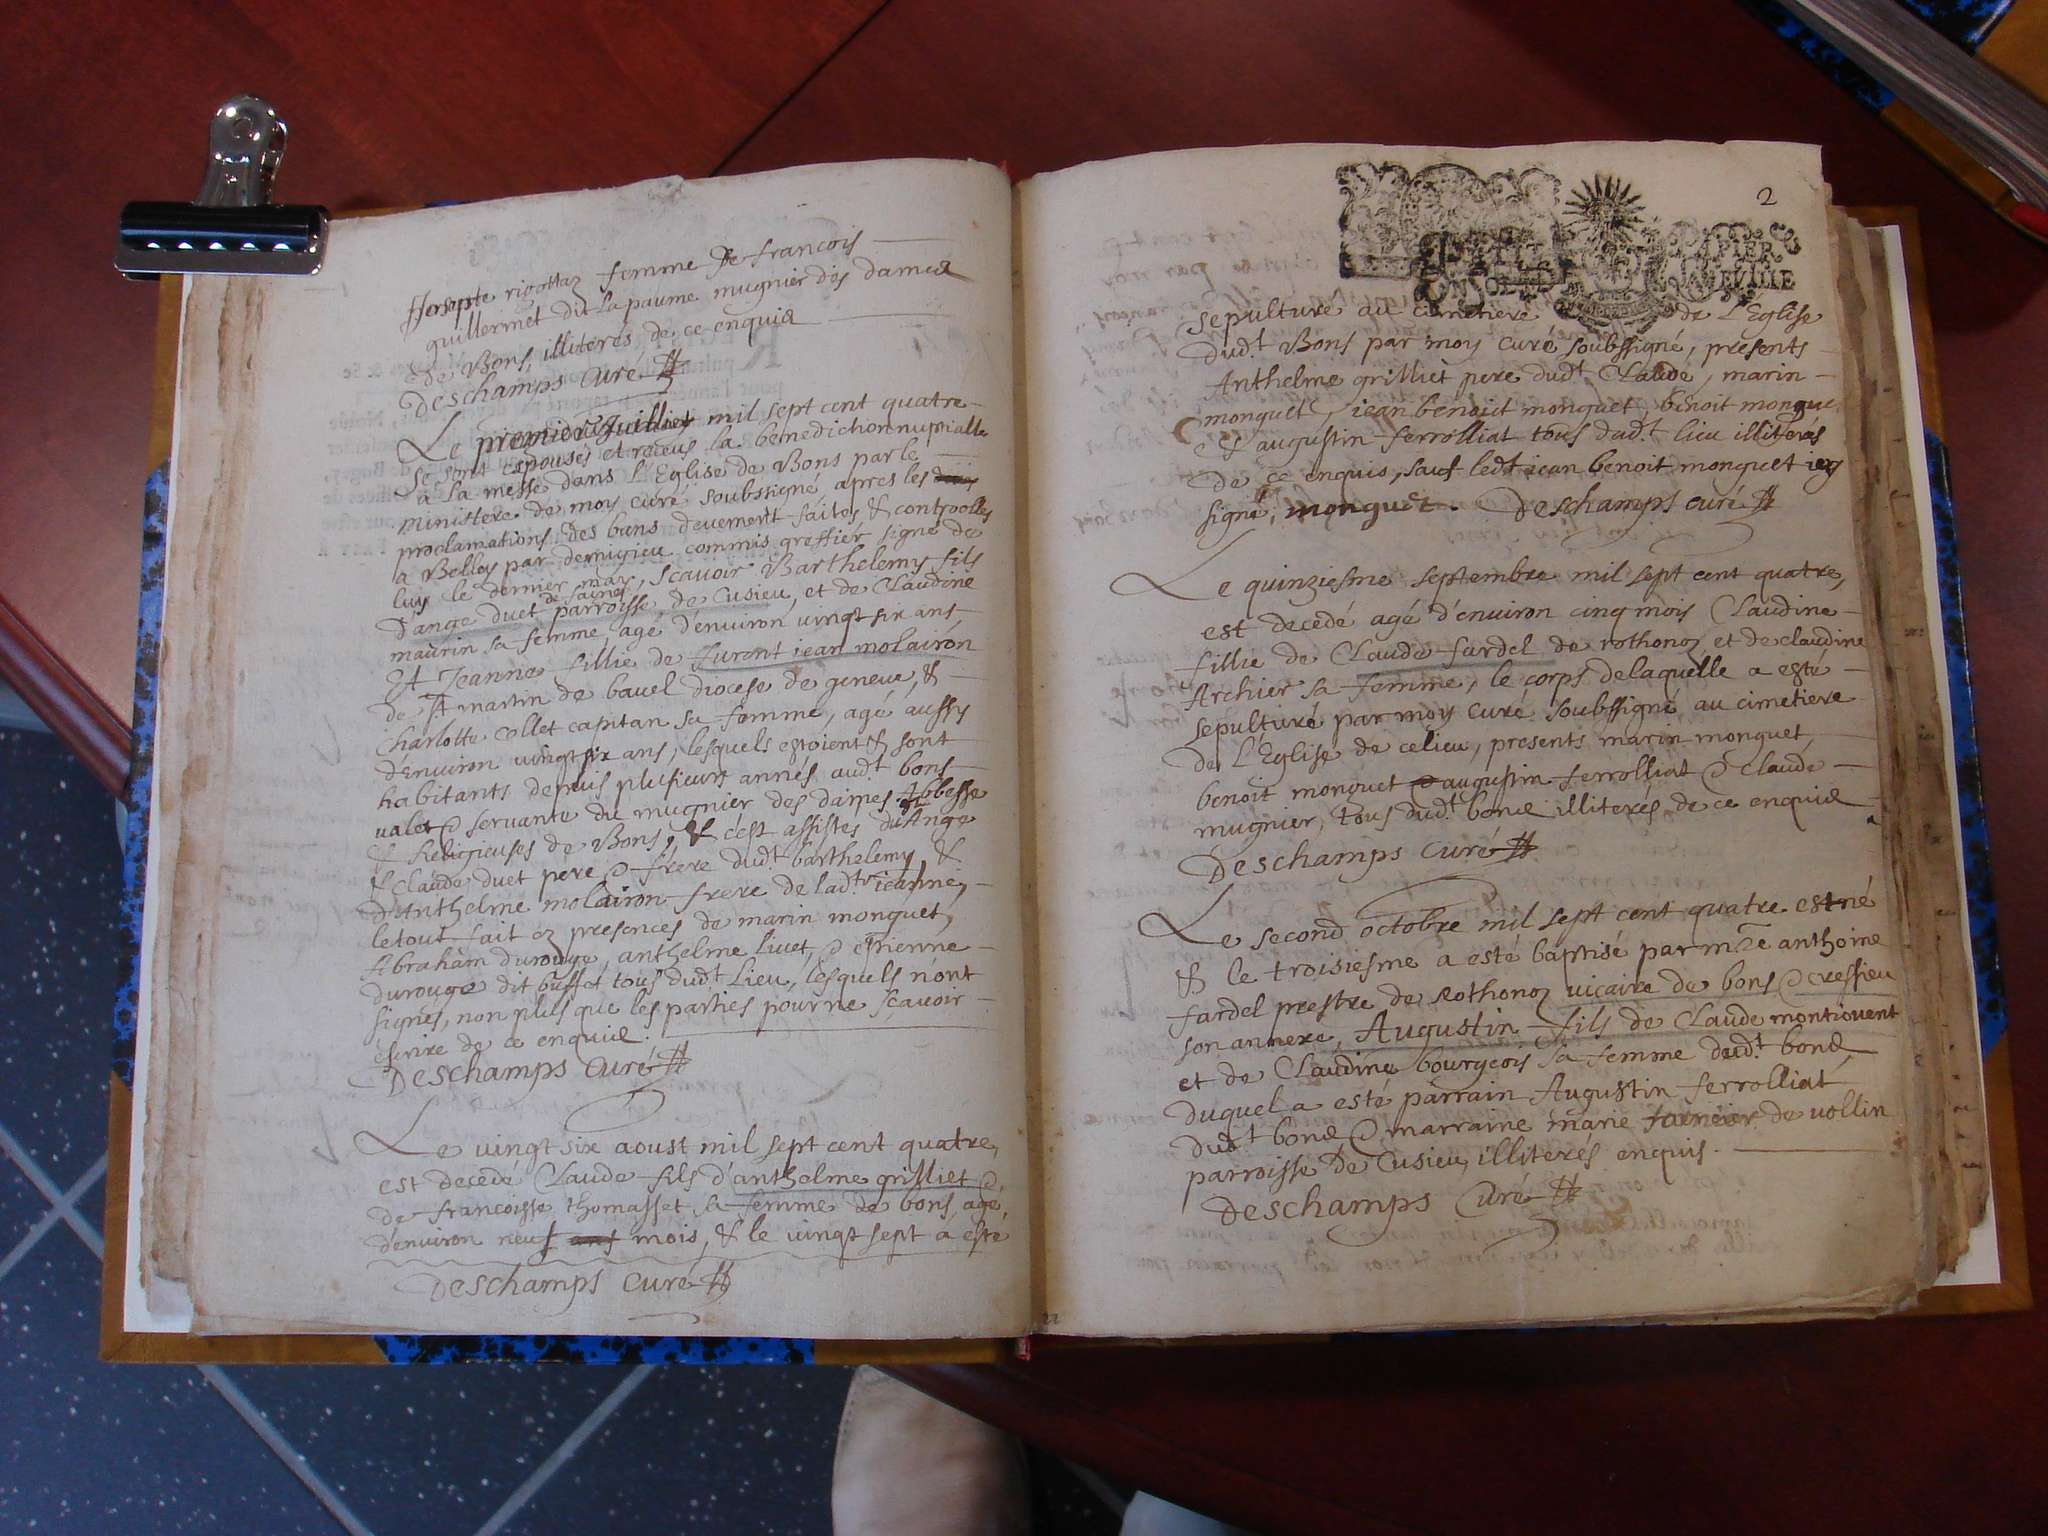 Josepte rigottaz femme De francois
guillermet dit la paume mugnier des dames
de Bons, illiterés de ce enquis
Deschamps Curé
Le premier Juilliet mil sept cent quatre
se sont espousés et receus la benediction nuptialle
a la messe dans l'Eglise de Bons par le
ministere de moy curé soubssigné apres les
proclamations des bans deuement faites & controolles
a Belley par demigieu commis greffier signé de
luy le dernier may, scauoir Barthelemy fils
d'ange duet de saines parroisse de Cusieu, et de Claudine
maurin sa femme, agé d'enuiron vingt six ans
Et Jeanne fillie de Jurent jean molairon
de St martin de bauel diocese de geneue, &
Charlotte Collet capitan sa femme, agé aussy
d'enuiron vingt six ans, lesquels estoient & sont
habitants depuis plusieurs annés audt bons
valet & seruante du mugnier des dames Abbesse
& Religieuses de Bons, & c'est assistes du Ange
& Claude duet pere & frere dudt barthelemy, &
d'Anthelme molairon frere de ladte jeanne,
le tout fait ez presences de marin monguet,
Abraham durouge, anthelme liuet, & etienne
durouge dit buffet tous dudt Lieu, lesquels n'ont
signés, non plus que les parties pour ne scauoir
escrire de ce enquis.
Deschamps Curé
Le vingt six aoust mil sept cent quatre,
est decedé Claude fils d'anthelme grilliet &
de francoisse thomasset sa femme de bons, agé
d'enuiron neuf ans mois, & le vingt sept a esté
Deschamps curé
2
PAPIER
sepulturé au cimetiere de L'Eglise
dudt Bons par moy curé soubssigné, presents
Anthelme grilliet pere dudt Claude, marin
monguet, jean benoict monguet, benoit monguet
& augustin ferrolliat tous dudt lieu illiterés
de ce enquis, sauf ledt jean benoit monguet icy
signé, monguet. Deschamps curé
Le quinziesme septembre mil sept cent quatre,
est decedé agé d'enuiron cinq mois Claudine
fillie de Claude fardel de rothonoz et de claudine
Archier sa femme, le corps de laquelle a esté
sepulturé par moy curé soubssigné au cimetiere
de L'Eglise de ce lieu, presents marin monguet,
benoit monguet augustin ferrolliat & Claude
mugnier, tous dudt bons illiterés de ce enquis
Deschamps Curé
Le second octobre mil sept cent quatre est né
& le troisiesme a esté baptisé par mre anthoine
fardel prestre de Rothonoz vicaire de bons & cressieu
son annexe, Augustin fils de Claude montiouent
et de Claudine bourgeois sa femme dudt bons,
duquel a esté parrain Augustin ferrolliat
dudt bons & marraine marie de vollin
parroisse De Cusieu, illiterés enquis.
Deschamps Curé